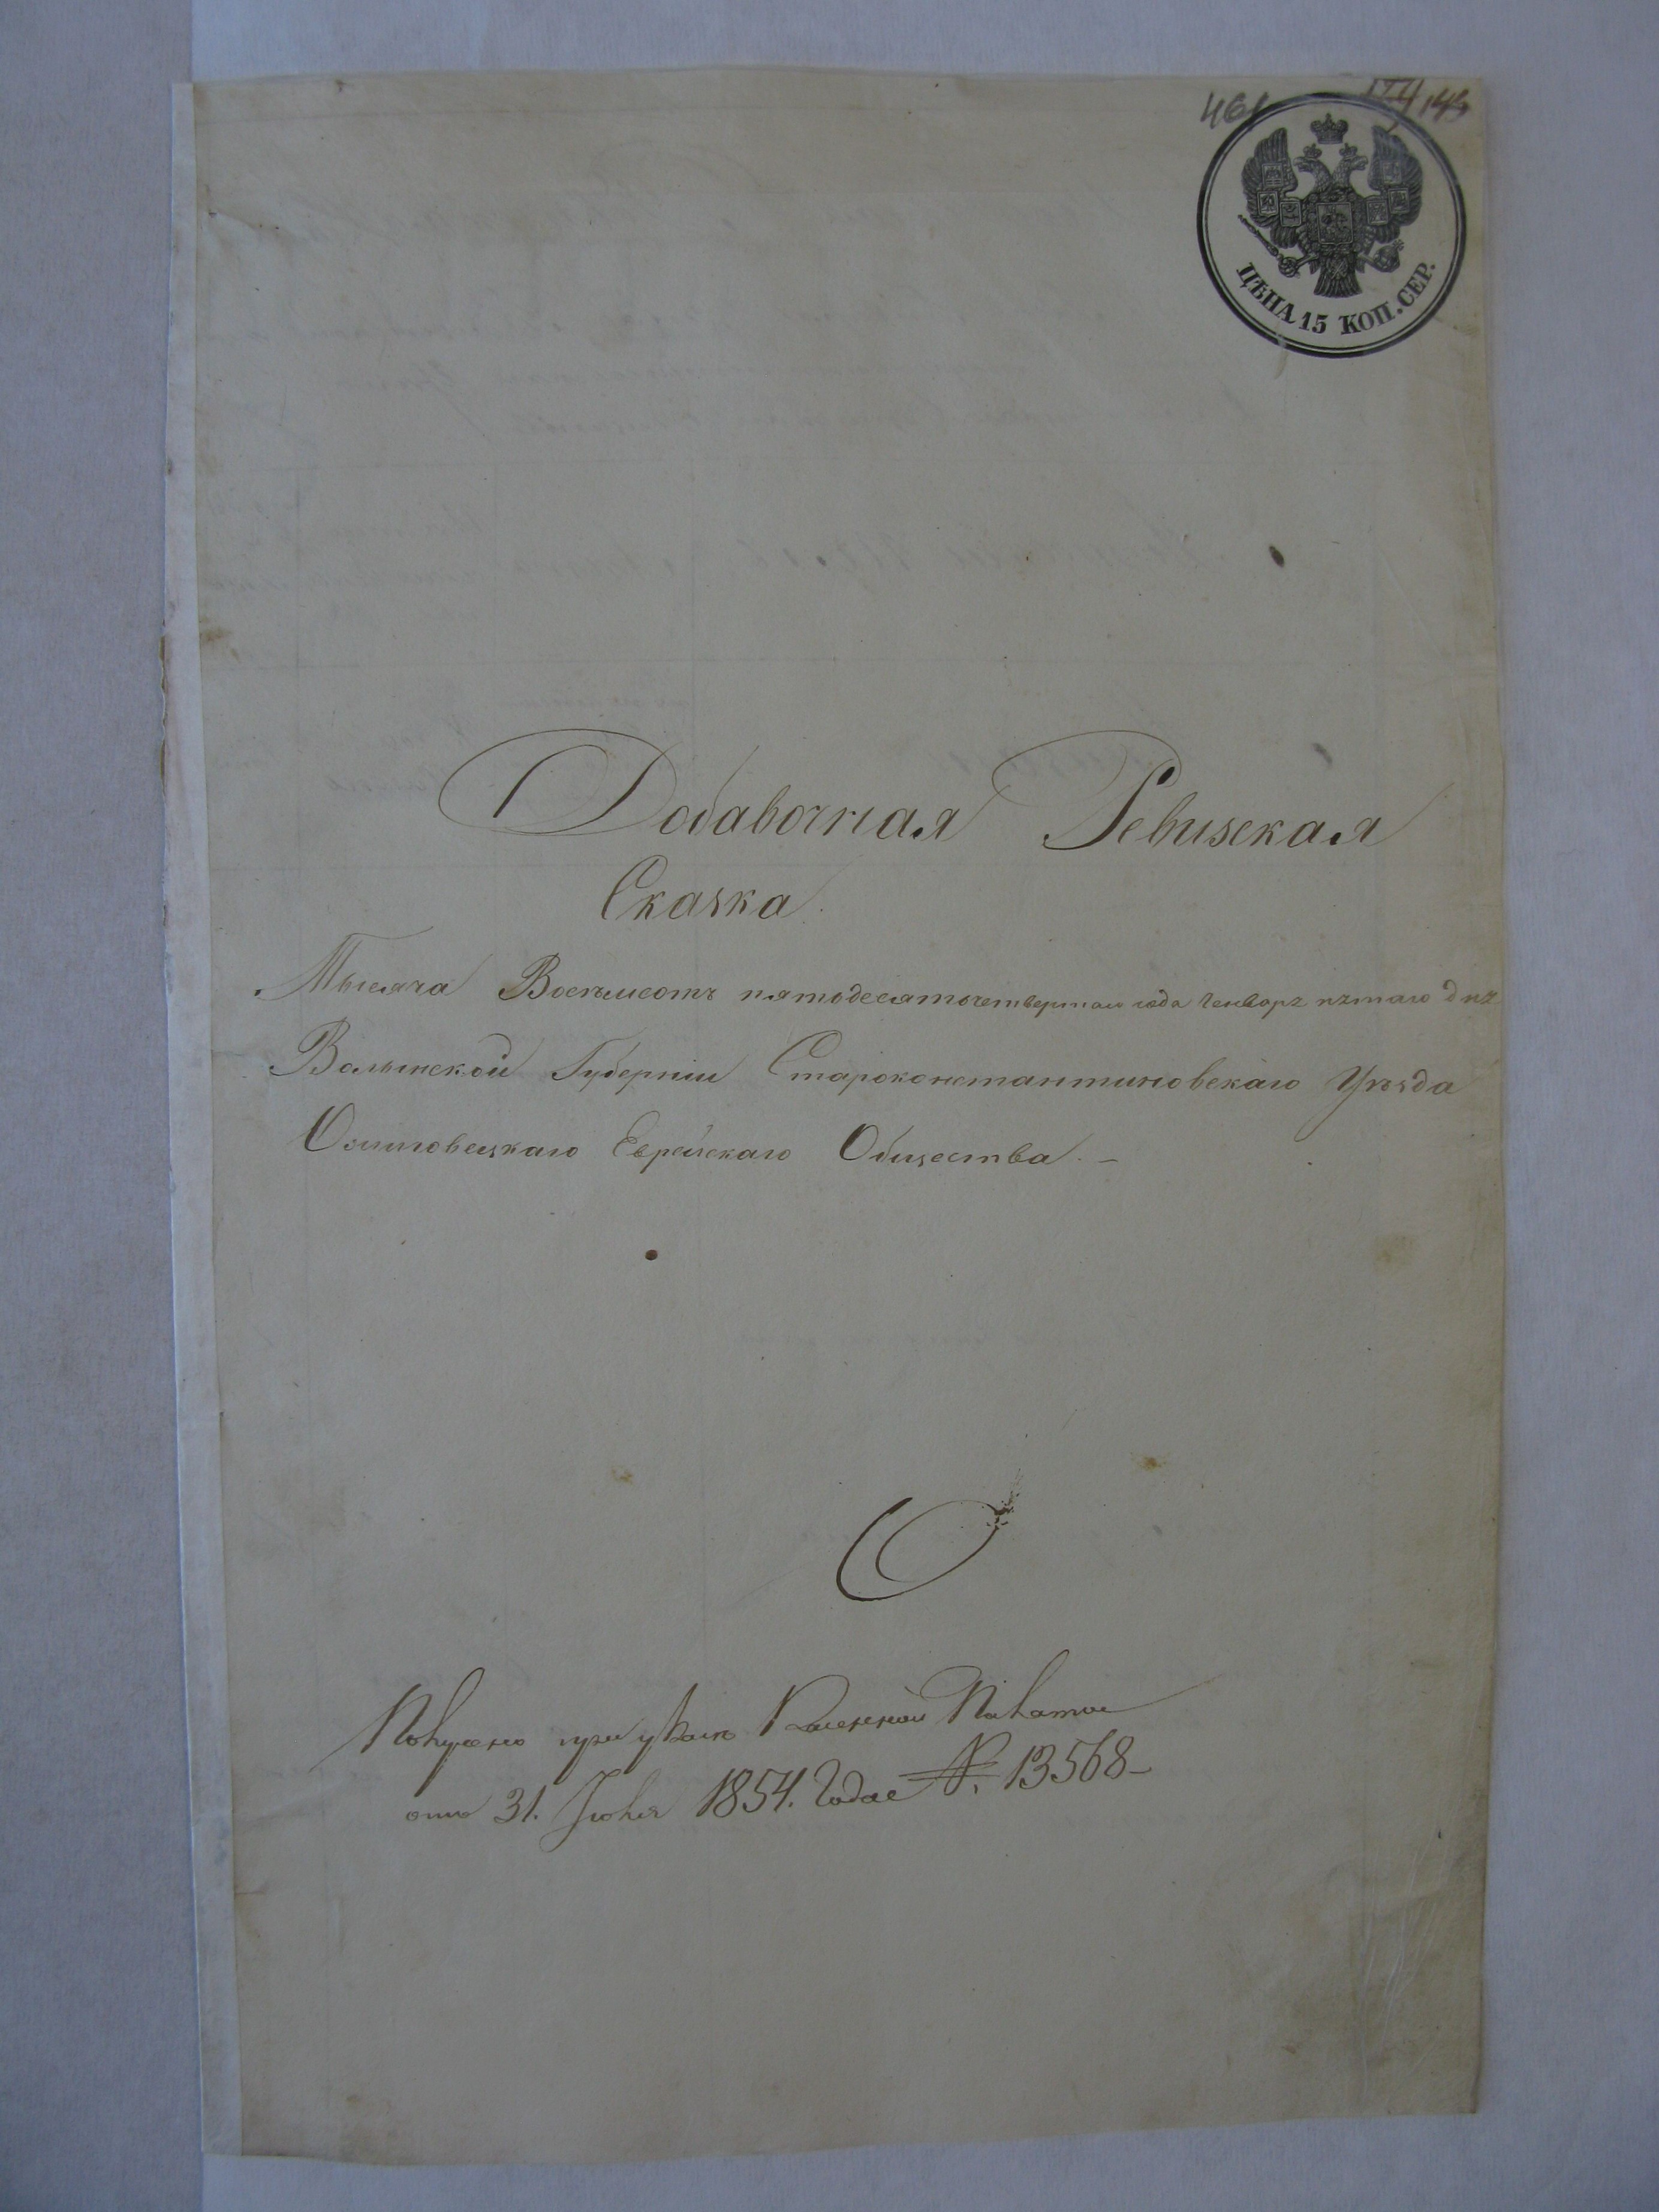 174 145
ЦѢНА 15 КОП. СЕР.
Добавочная Ревизская
Сказка.
Тысяча Восемьсотъ пятьдесятъ четвертаго года Генваря пятаго дня
Волынской Губерніи Староконстантиновскаго Уѣзда
Еврейскаго Общества. —
Получено при указѣ Казенной Палаты
отъ 31. Іюля 1854. Года №. 13568 —